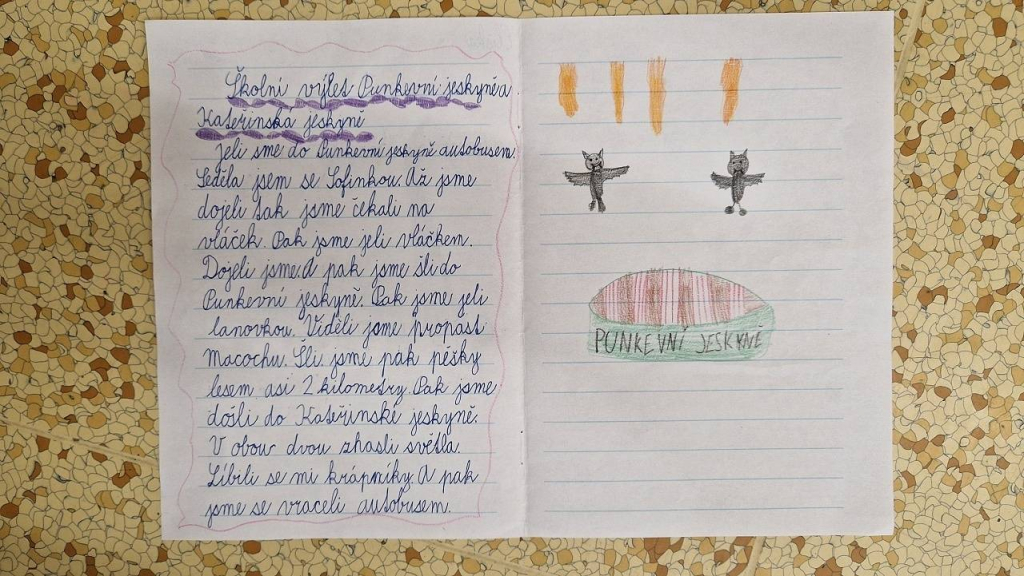 Školní výlet Punkevní jeskyně a
Kateřinská jeskyně
Jeli sme do Punkevní jeskyně autobusem.
Seděla jsem se Sofinkou. Až jsme
dojeli tak jsme čekali na
vláček. Pak jsme jeli vláčkem.
Dojeli jsme a pak jsme šli do
Punkevní jeskyně. Pak jsme jeli
lanovkou. Viděli jsme propast
Macochu. Šli jsme pak pěšky
lesem asi 2 kilometry. Pak jsme
došli do Kateřinské jeskyně.
V obou dvou zhasli světla.
Líbili se mi krápníky. A pak
jsme se vraceli autobusem.
PUNKEVNÍ JESKYNĚ